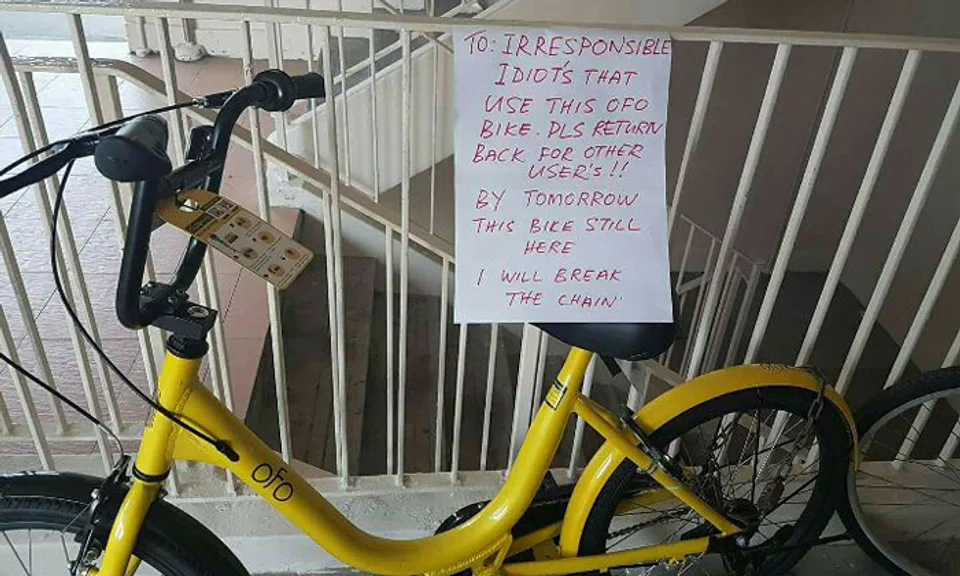 TO: IRRESPONSIBLE
IDIOT'S THAT
USE THIS OFO
BIKE. PLS RETURN
BACK FOR OTHER
USER'S!!
BY TOMORROW
THIS BIKE STILL
HERE
I WILL BREAK
THE CHAIN'
ofo